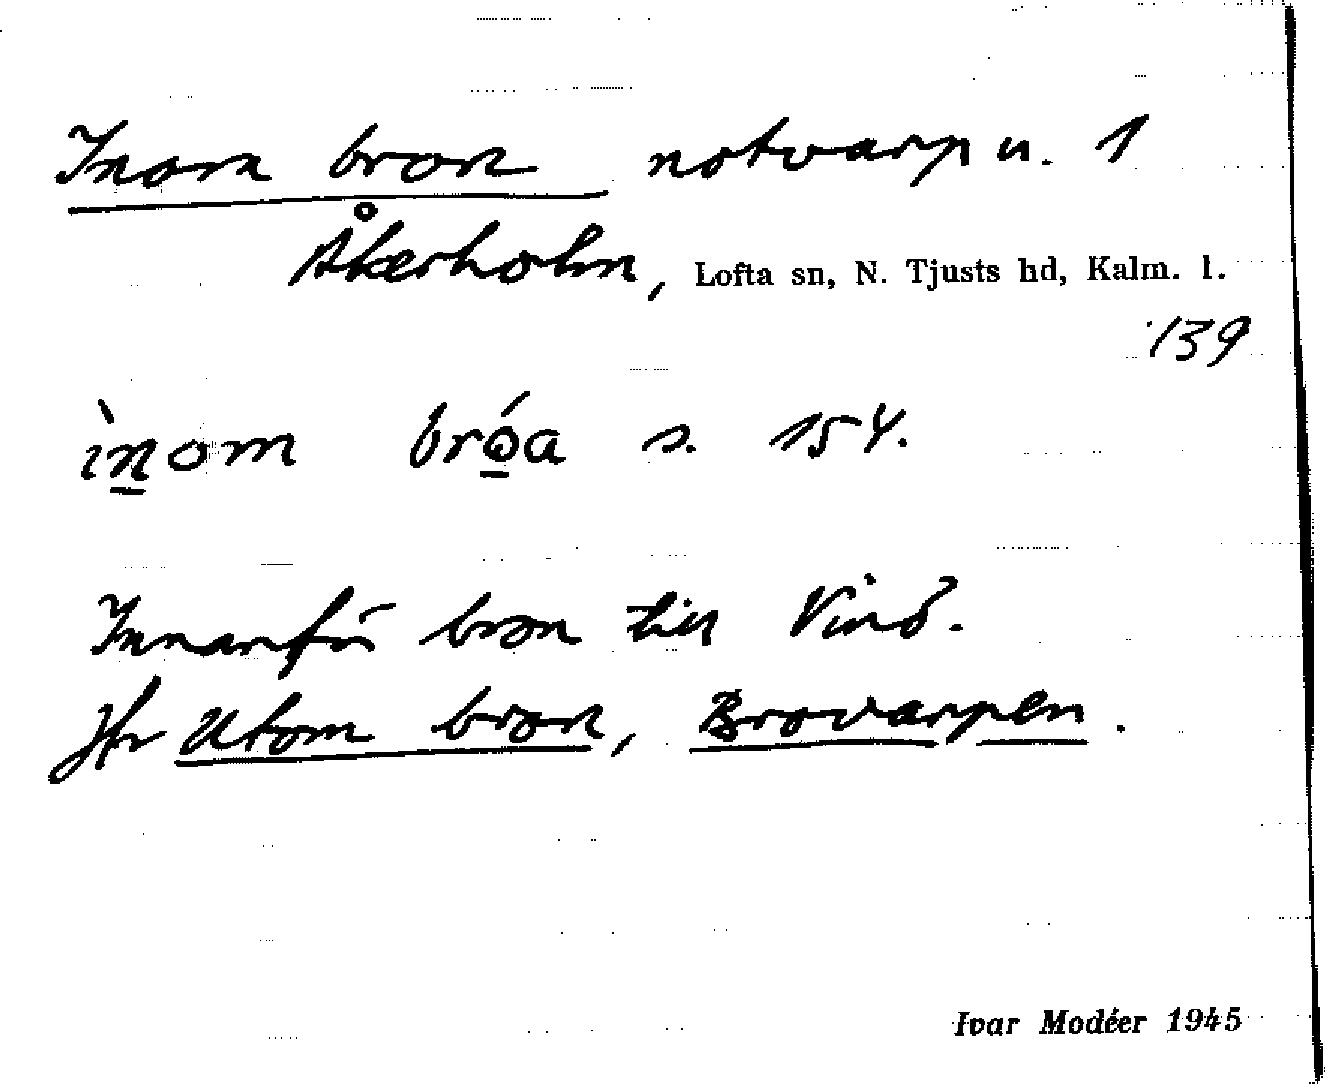 Inom bron notvarp u. 1
Åkerholm, Lofta sn, N. Tjusts hd, Kalm. l.
139
ìn̲om bró̲a s. 154.
Innanför bron till Vinö.
Jfr Utom bron, Brovarpen.
Ivar Modéer 1945